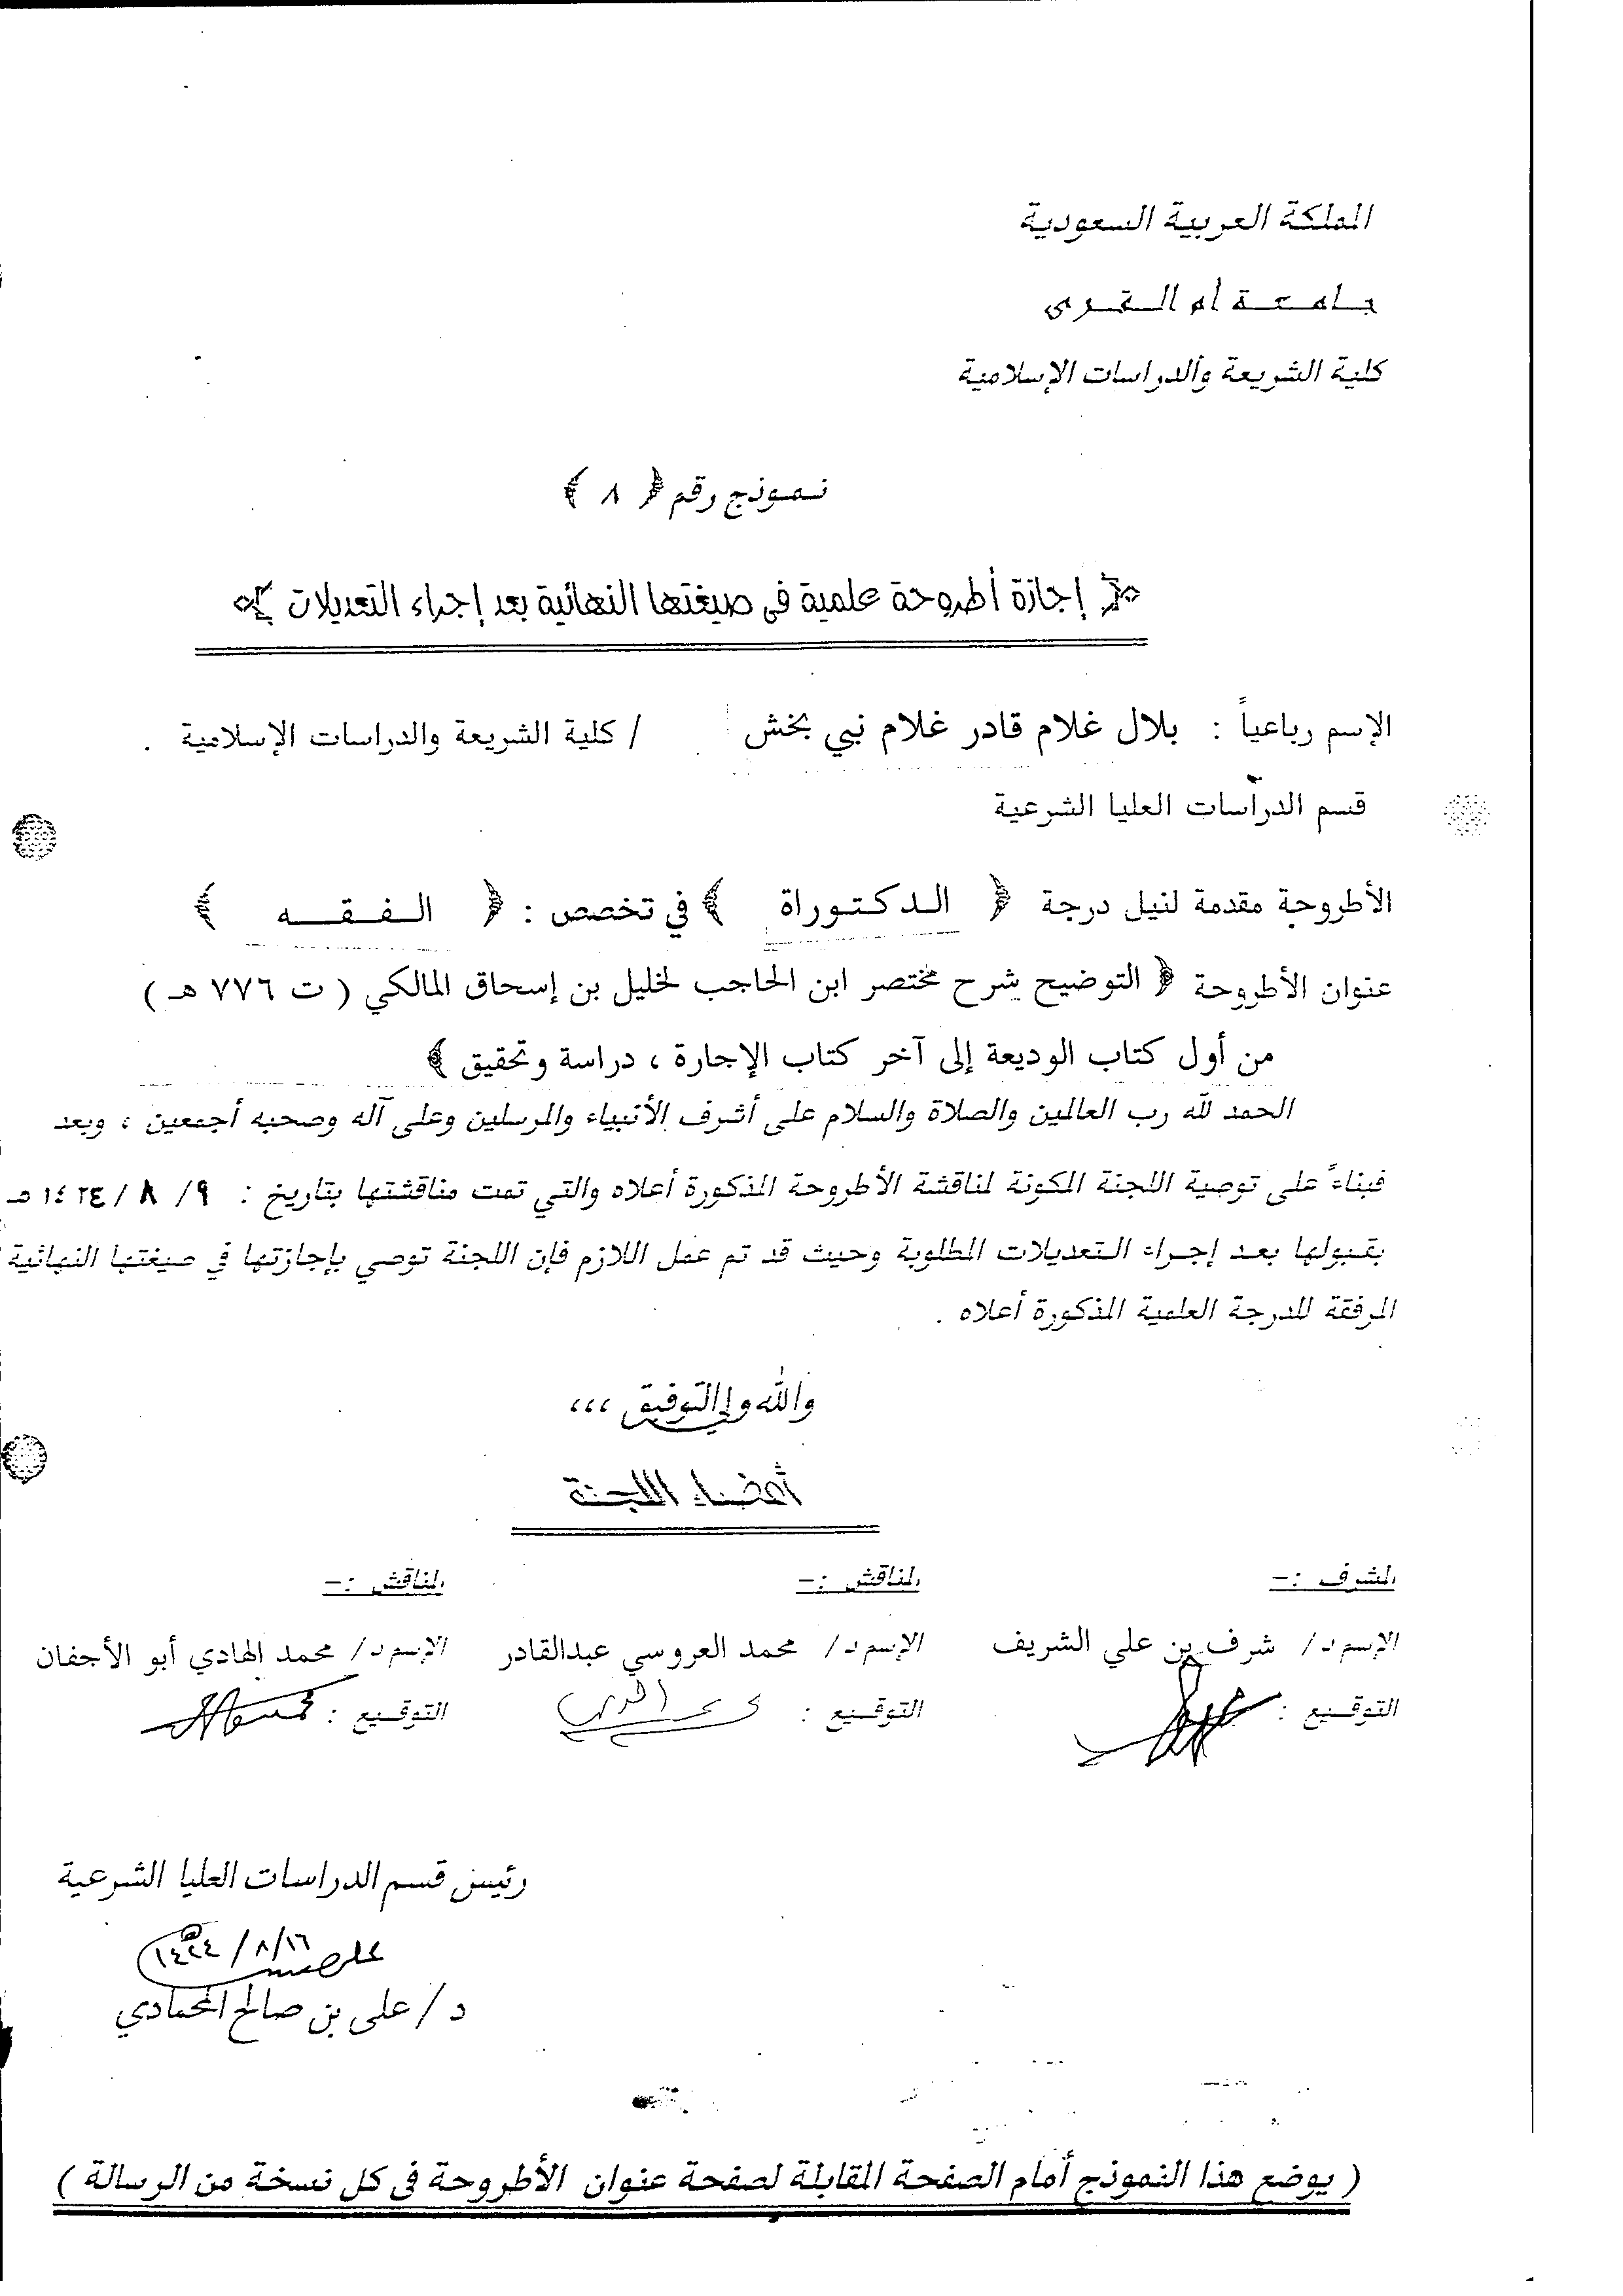 المملكة العربية السعودية
جـامـعـة أم الـقـرى
كلية الشريعة والدراسات الإسلامية
نـمـوذج رقم ﴿ ٨ ﴾
﴿ إجازة أطروحة علمية في صيغتها النهائية بعد إجراء التعديلات ﴾
الإسم رباعياً : بلال غلام قادر غلام نبي بخش / كلية الشريعة والدراسات الإسلامية .
قسم الدراسات العليا الشرعية
الأطروحة مقدمة لنيل درجة ﴿ الـدكـتـوراة ﴾ في تخصص : ﴿ الـفـقـه ﴾
عنوان الأطروحة ﴿ التوضيح شرح مختصر ابن الحاجب لخليل بن إسحاق المالكي ( ت ٧٧٦ هـ )
من أول كتاب الوديعة إلى آخر كتاب الإجارة ، دراسة وتحقيق ﴾
الحمد لله رب العالمين والصلاة والسلام على أشرف الأنبياء والمرسلين وعلى آله وصحبه أجمعين ، وبعد
فبناءً على توصية اللجنة المكونة لمناقشة الأطروحة المذكورة أعلاه والتي تمت مناقشتها بتاريخ : ٩ / ٨ / ١٤٢٤ هـ
بقبولها بعد إجراء التعديلات المطلوبة وحيث قد تم عمل اللازم فإن اللجنة توصي بإجازتها في صيغتها النهائية
المرفقة للدرجة العلمية المذكورة أعلاه .
والله ولي التوفيق ،،،
أعضاء اللجنة
المشرف :- المناقش :- المناقش :-
الإسم د/ شرف بن علي الشريف الإسم د/ محمد العروسي عبدالقادر الإسم د/ محمد الهادي أبو الأجفان
التوقـيع : التوقـيع : التوقـيع :
رئيس قسم الدراسات العليا الشرعية
١٦/ ٨ / ١٤٢٤هـ
د / علي بن صالح المحمادي
( يوضع هذا النموذج أمام الصفحة المقابلة لصفحة عنوان الأطروحة في كل نسخة من الرسالة )